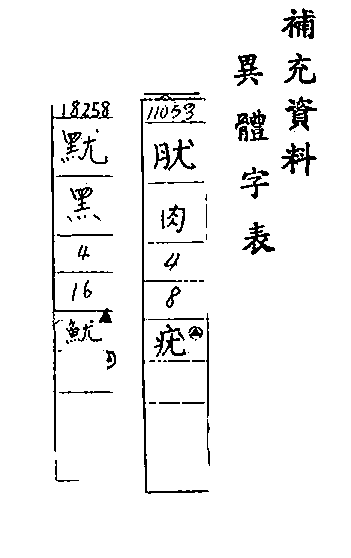 補充資料
異體字表
11053
肬
肉
4
8
疣
18258
黑
4
16